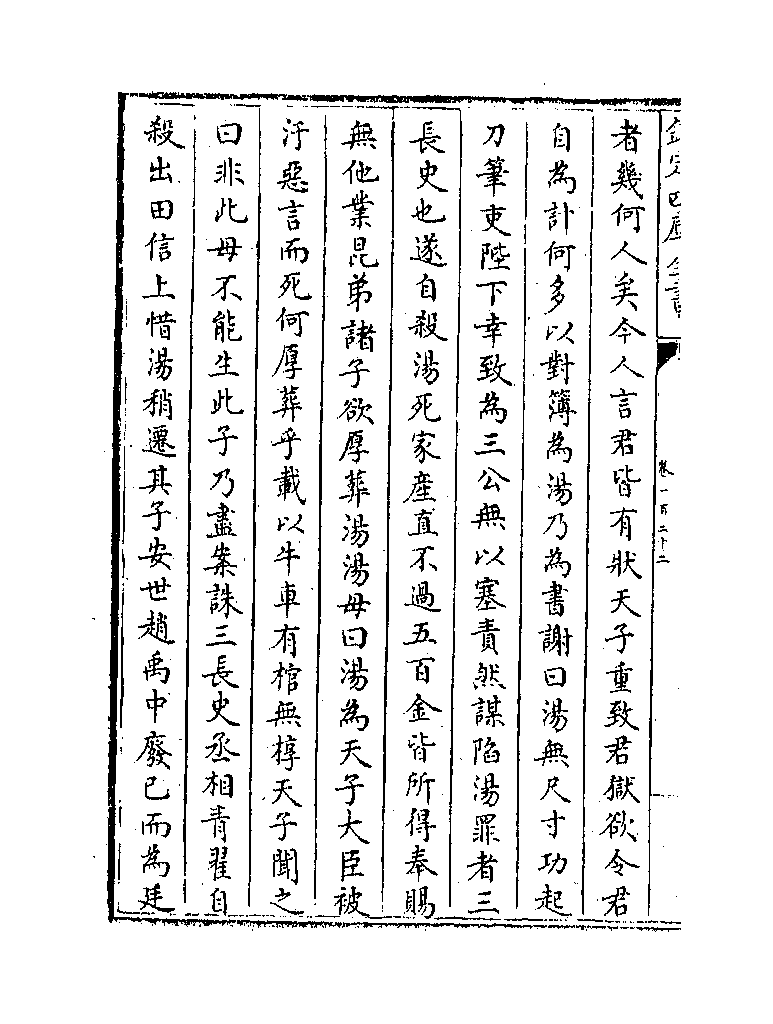 欽定四庫全書
卷一百二十二
者幾何人矣今人言君皆有狀天子重致君獄欲令君
自為計何多以對簿為湯乃為書謝曰湯無尺寸功起
刀筆吏陛下幸致為三公無以塞責然謀陷湯罪者三
長史也遂自殺湯死家産直不過五百金皆所得奉賜
無他業昆弟諸子欲厚葬湯湯母曰湯為天子大臣被
汙惡言而死何厚葬乎載以牛車有棺無椁天子聞之
曰非此母不能生此子乃盡案誅三長史丞相青翟自
殺出田信上惜湯稍遷其子安世趙禹中廢已而為廷